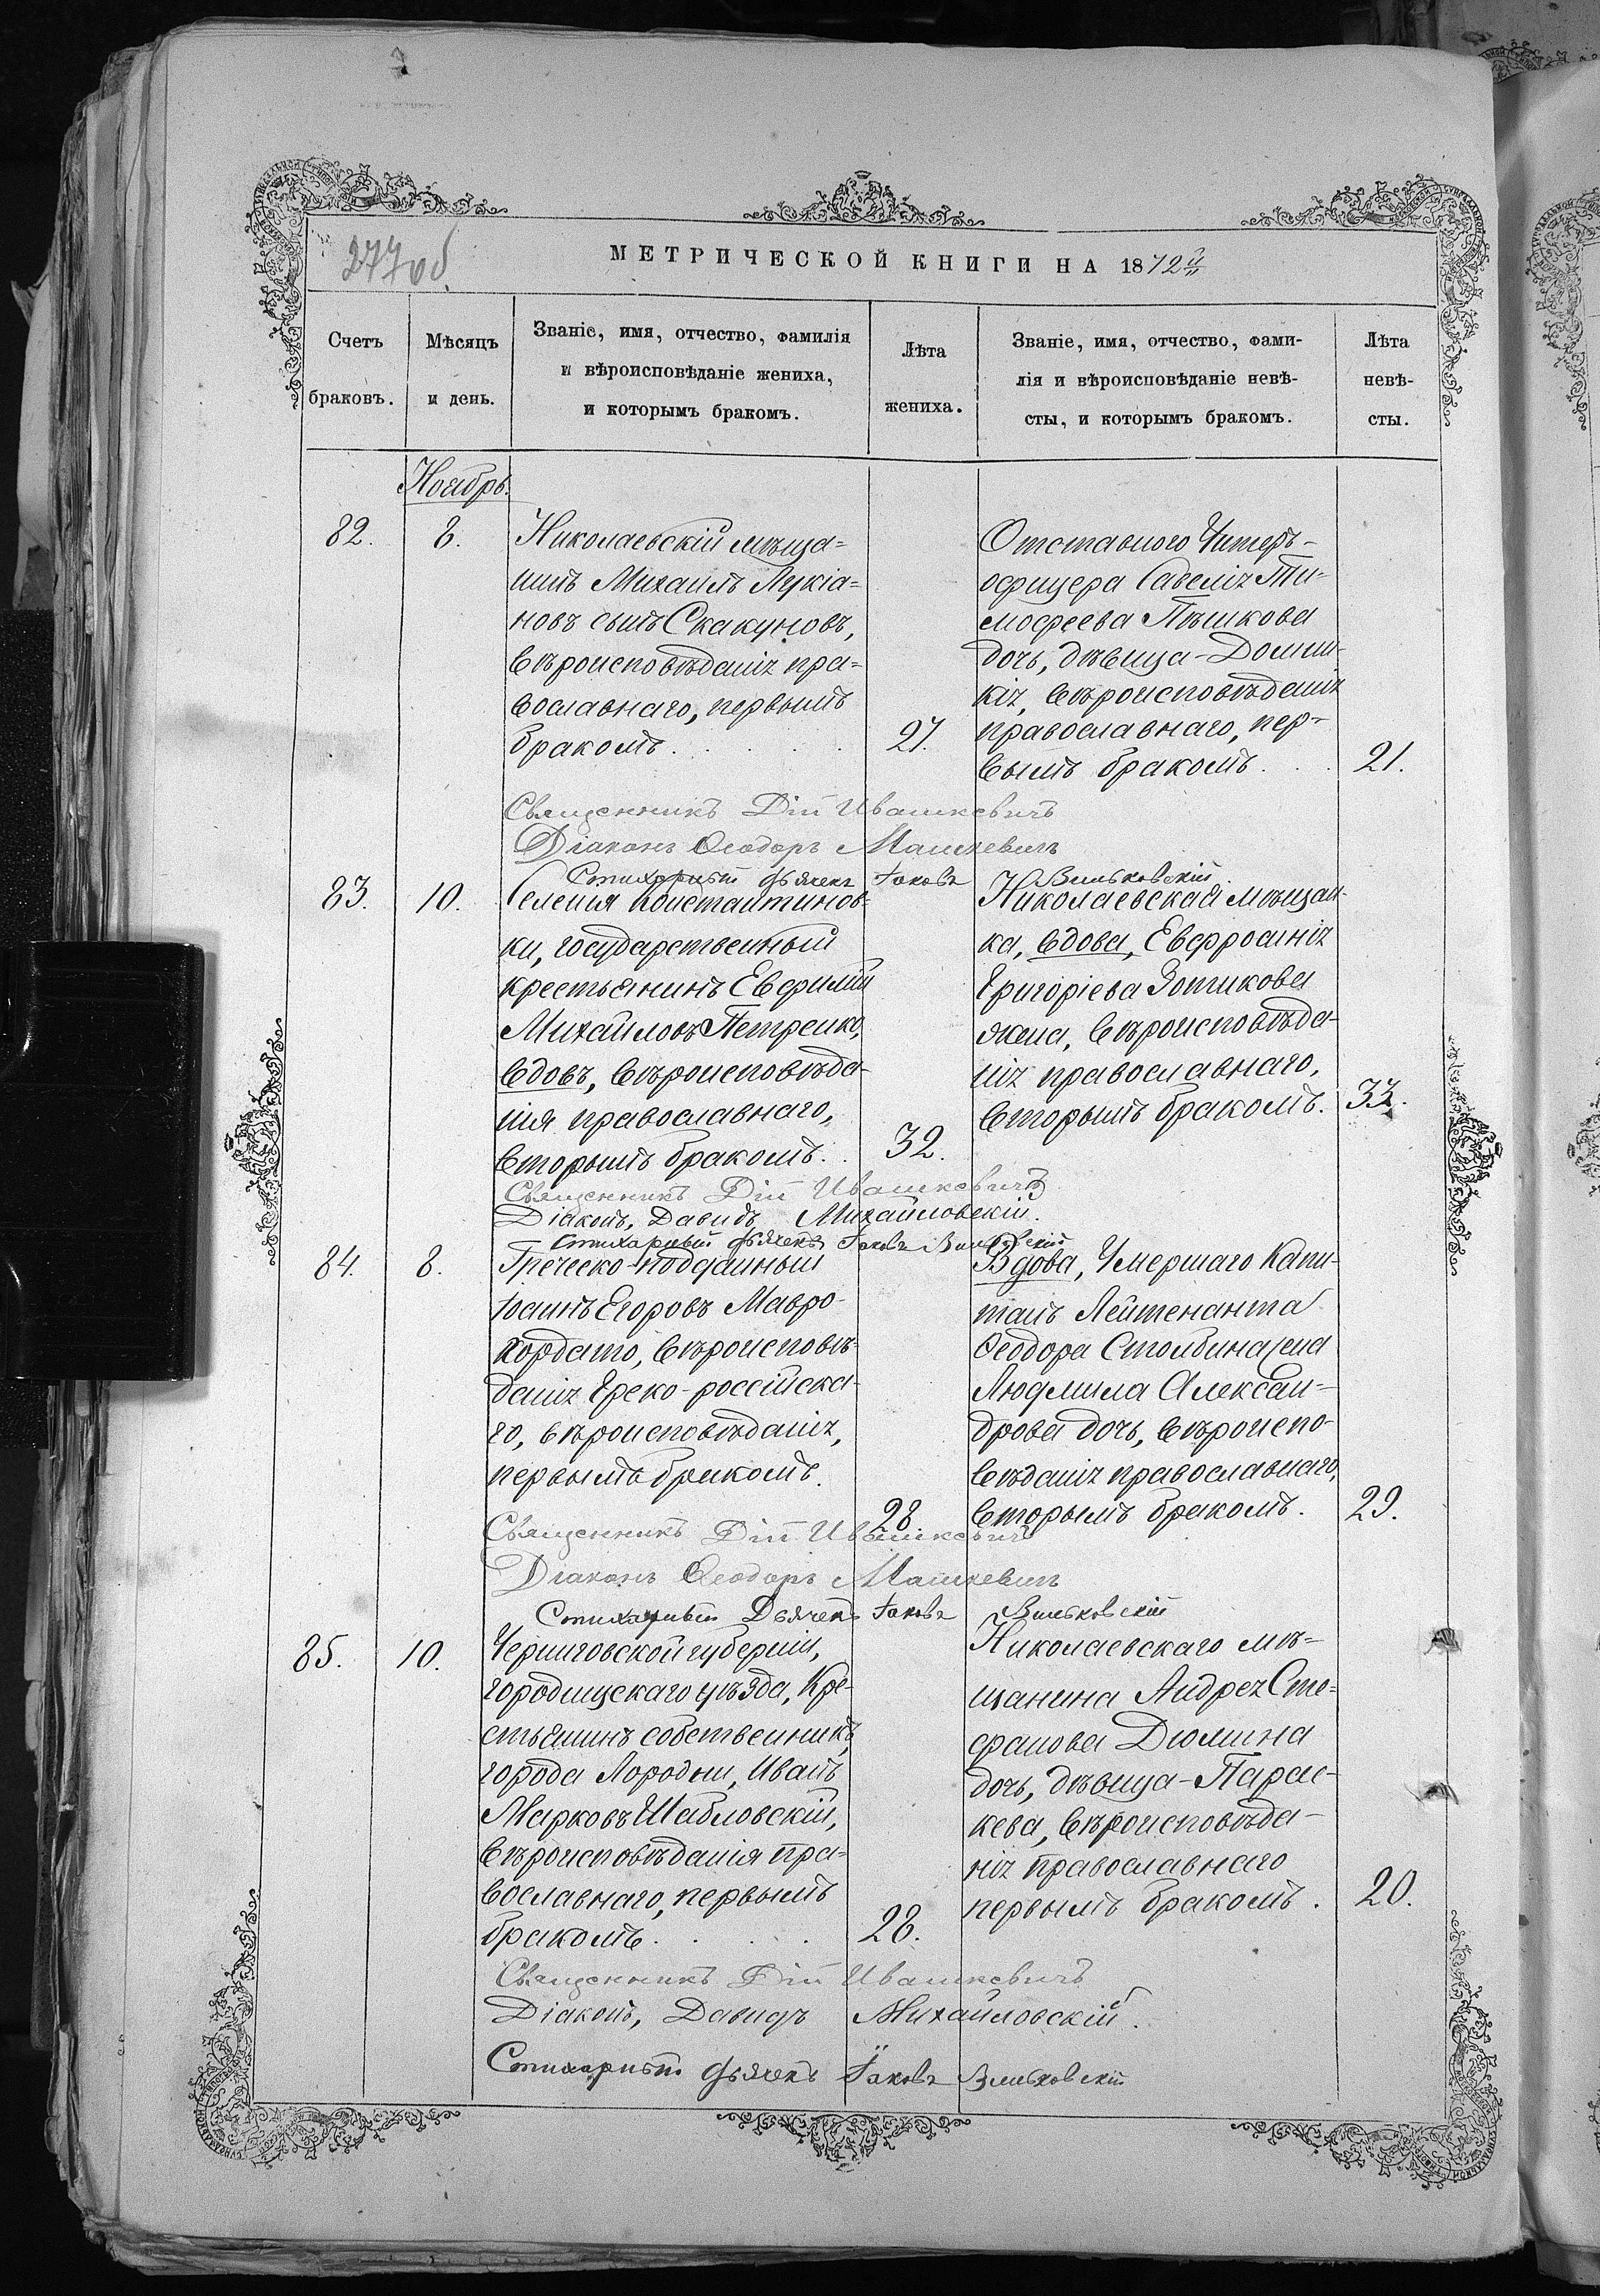 277 об.
МЕТРИЧЕСКОЙ КНИГИ НА 1872й
Счетъ
браковъ.
Мѣсяцъ
и день.
Званіе, имя, отчество, фамилія
и вѣроисповѣданіе жениха,
и которымъ бракомъ.
Лѣта
жениха.
Званіе, имя, отчество, фами-
лія и вѣроисповѣданіе невѣ-
сты, и которымъ бракомъ.
Лѣта
невѣ-
сты.
Ноябрь.
82.
8.
Николаевскій мѣща=
нинъ Михаилъ Лукіа=
новъ сынъ Скакуновъ,
вѣроисповѣданія пра=
вославнаго, первымъ
бракомъ.
27.
Отставного Унтеръ-
офицера Савелія Ти-
мофеева Пѣшкова
дочь, дѣвица-Домни-
кія, вѣроисповѣданія
православнаго, пер-
вымъ бракомъ.
21.
Священникъ Дій Ивашкевичъ
Діаконъ Ѳеодоръ Машкевичъ
Стихарный дьячекъ Іаковъ Вильковскій
83.
10.
Селенія Константинов-
ки, государственный
крестьянинъ Евфимій
Михайловъ Петренко,
вдовъ, вѣроисповѣда-
нія православнаго,
вторымъ бракомъ.
32.
Николаевская мѣщан-
ка, вдова, Евфросинія
Григоріева Зотикова
жена, вѣроисповѣда-
нія православнаго,
вторымъ бракомъ.
33.
Священникъ Дій Ивашкевичъ
Діаконъ, Давидъ Михайловскій.
Стихарный дьячекъ Іаковъ Вильковскій
84.
8.
Греческо-подданный
Іоаннъ Егоровъ Мавро-
кордато, вѣроисповѣ-
данія Греко-россійска-
го, вѣроисповѣданія,
первымъ бракомъ.
28
Вдова, Умершаго Капи-
танъ Лейтенанта
Ѳеодора Столбина жена
Людмила Алексан-
дрова дочь, вѣроиспо-
вѣданія православнаго,
вторымъ бракомъ.
29.
Священникъ Дій Ивашкевичъ
Діаконъ Ѳеодоръ Машкевичъ
Стихарный Дьячекъ Іаковъ Вильковскій
85.
10.
Черниговской губерніи,
городницскаго уѣзда, Кре-
стьянинъ собственникъ,
города Городни, Иванъ
Марковъ Шабловскій,
вѣроисповѣданія пра=
вославнаго, первымъ
бракомъ.
28.
Николаевскаго мѣ-
щанина Андрея Сте-
фанова Дюмина
дочь, дѣвица-Парас-
кева, вѣроисповѣда-
нія православнаго
первымъ бракомъ.
20.
Священникъ Дій Ивашкевичъ
Діаконъ, Давидъ Михайловскій.
Стихарный дьячекъ Іаковъ Вильковскій